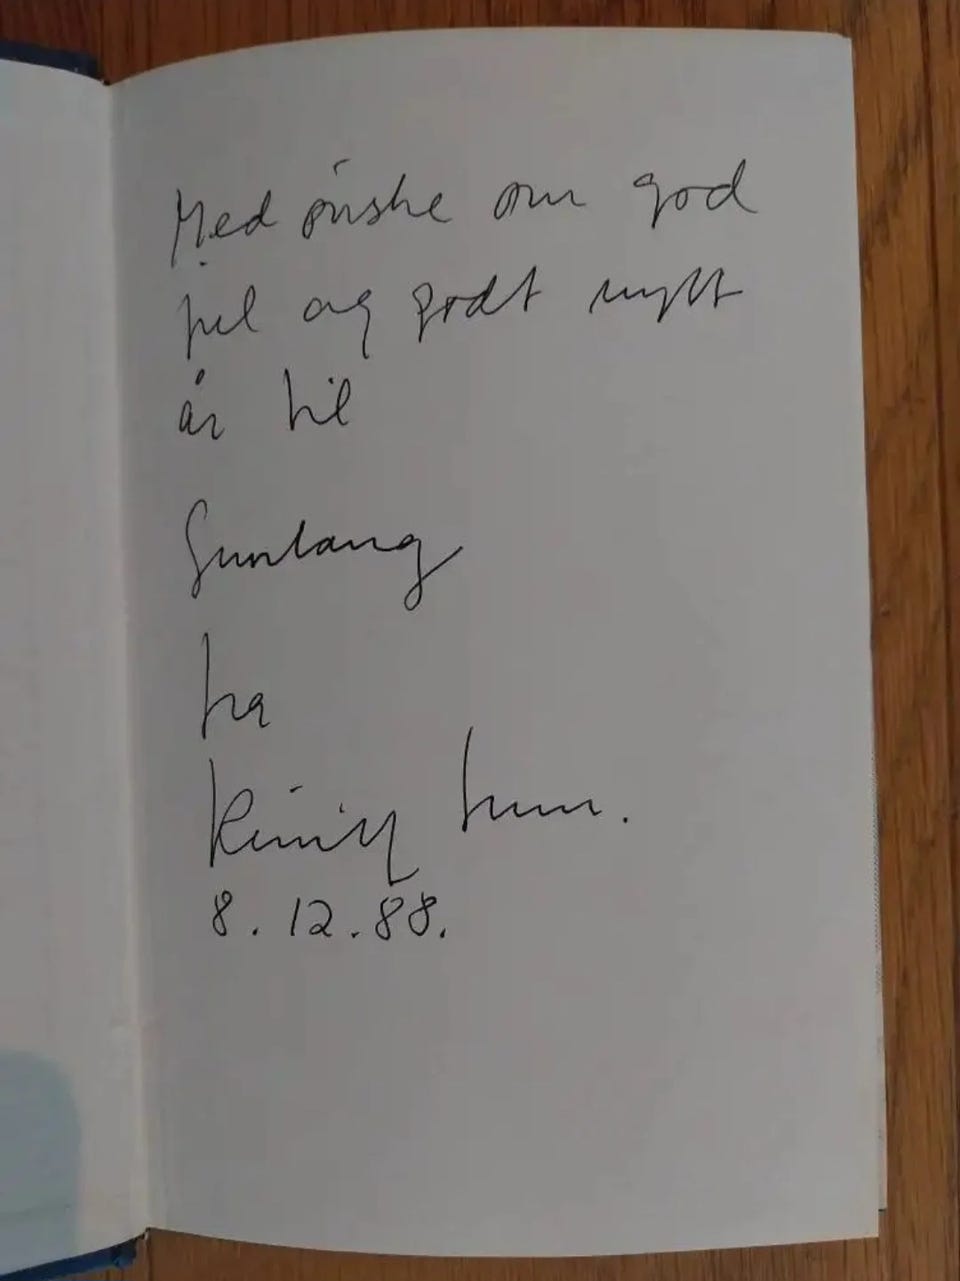 Med ønske om god
jul og godt nytt
år til
Gunlaug
fra
8.12.88.